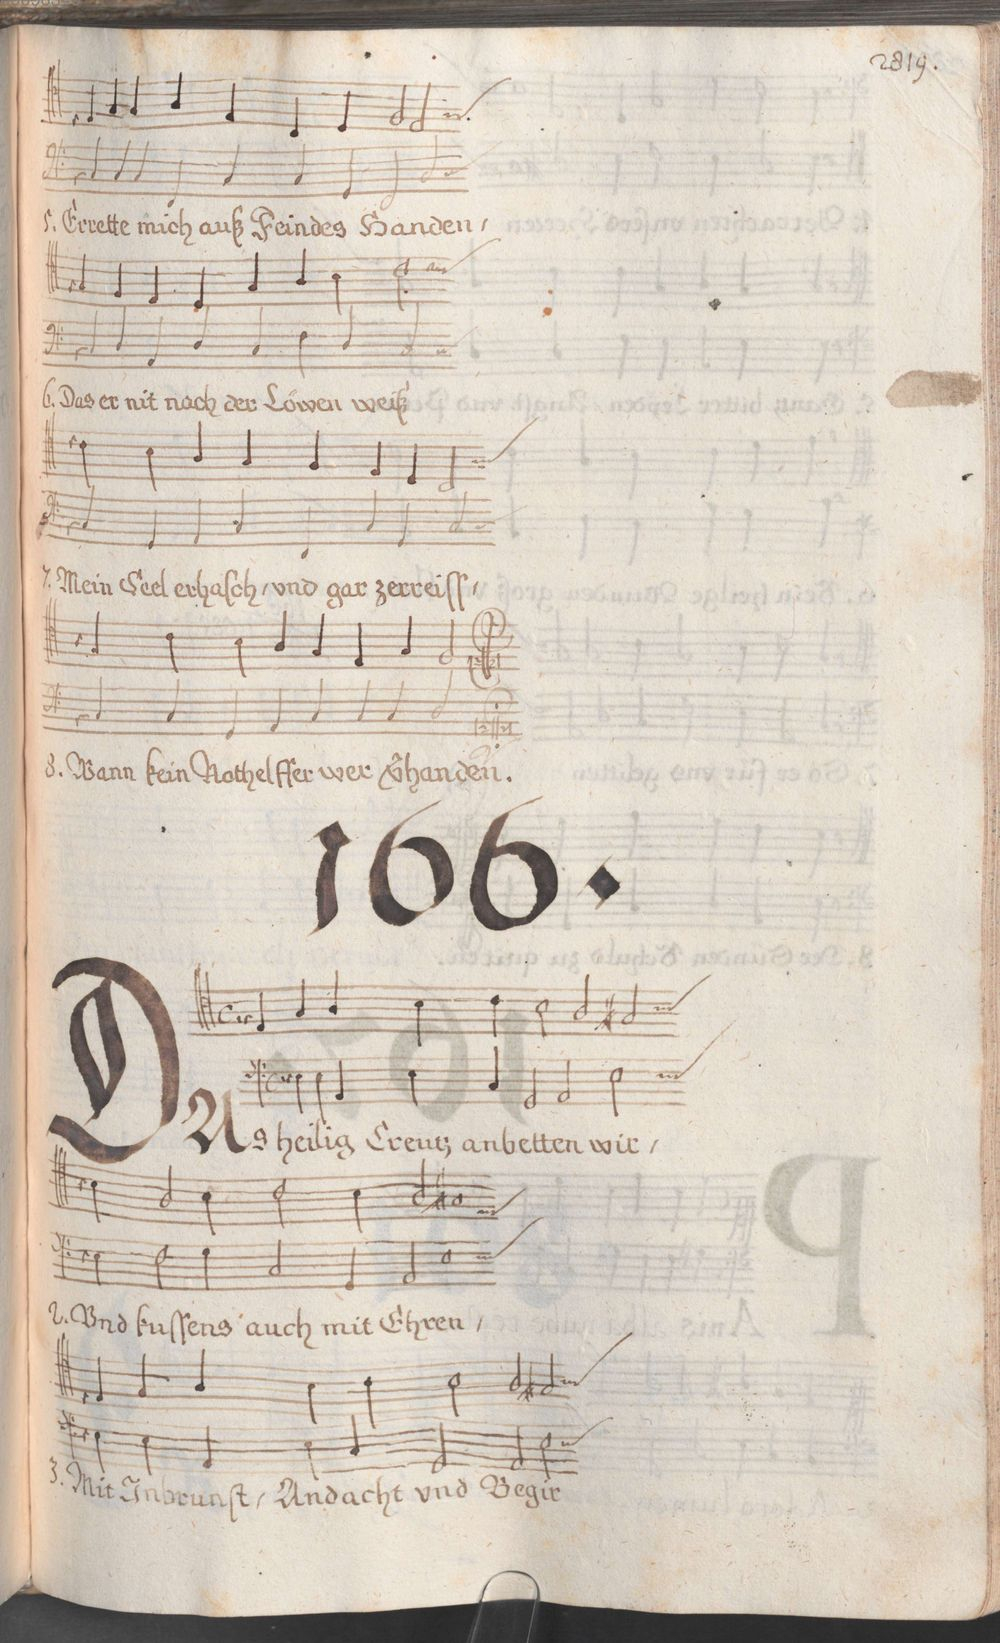 2819.
5. Errette mich auß Feindes Handen /
6. Das er nit nach der Löwen weiß
7. Mein Seel erhasch / vnd gar zerreiss /
8. Wann kein Nothelffer wer v̈handen.
166.
DAs heilig Creutz anbetten wir /
2. Vnd kussens auch mit Ehren /
3. Mit Inbrunst / Andacht vnd Begir